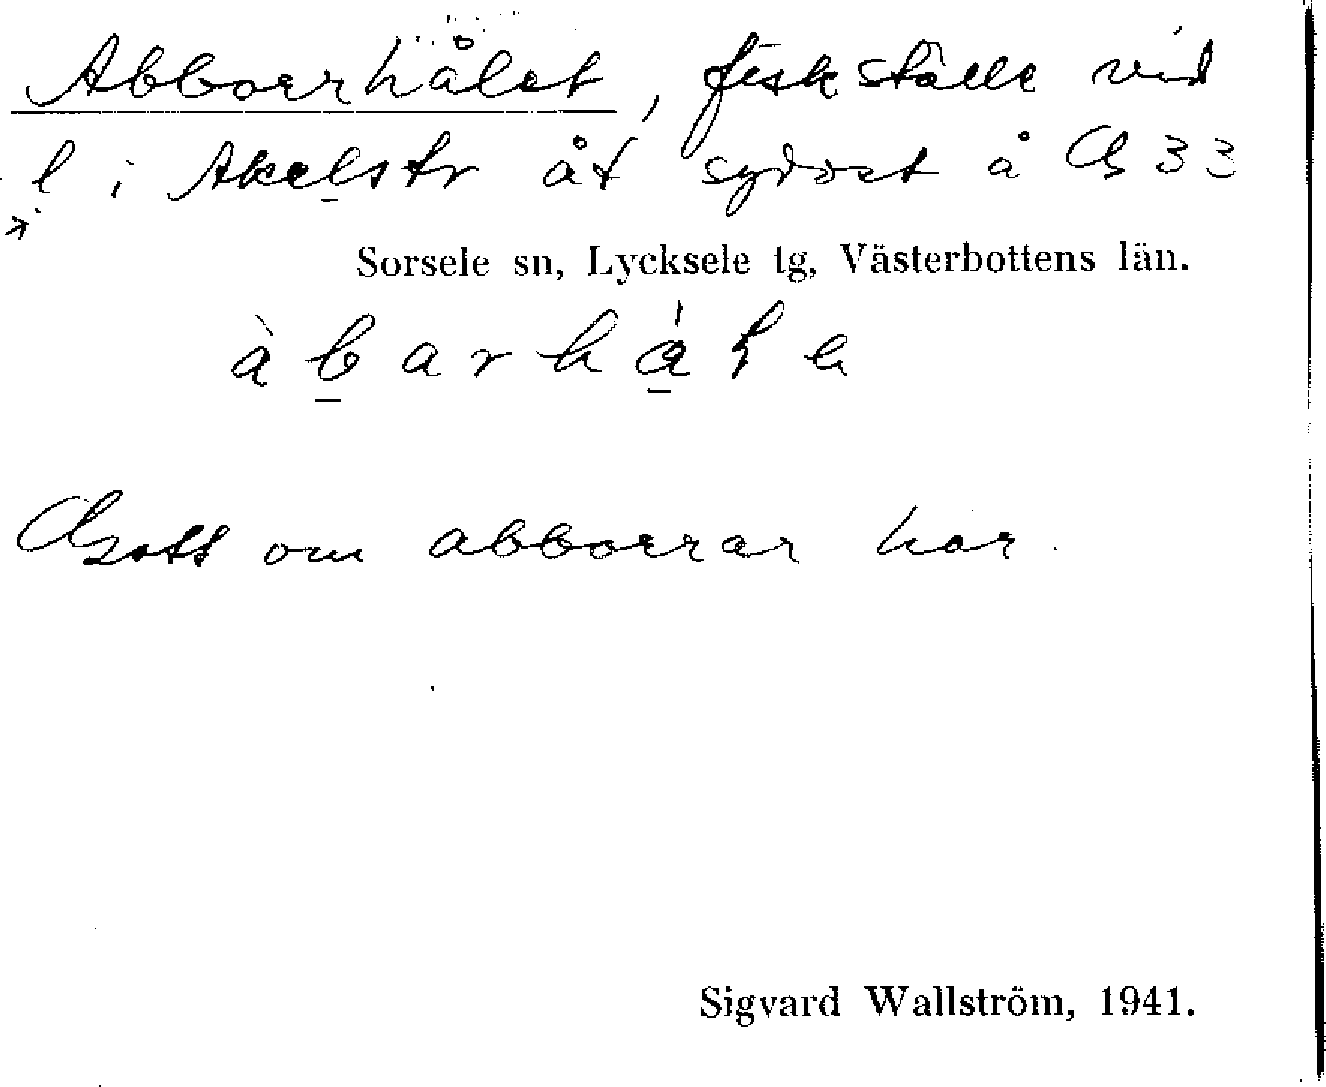 Abborrhålet, fiskställe vid
l i Akelstr åt sydost å G 33
Sorsele sn, Lycksele tg, Västerbottens län.
àbarhåla
Gott om abborrar har.
Sigvard Wallström, 1941.